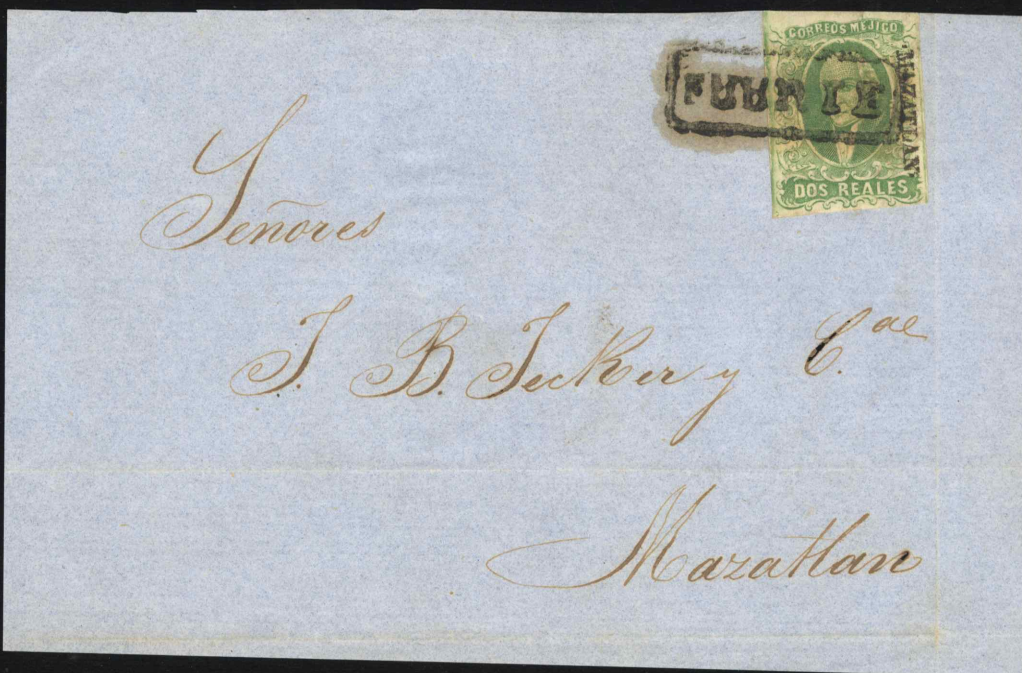 CORREOS MEJICO
MAZATLAN
DOS REALES
Señores
J. B. Jecker y C.ae
Mazatlan